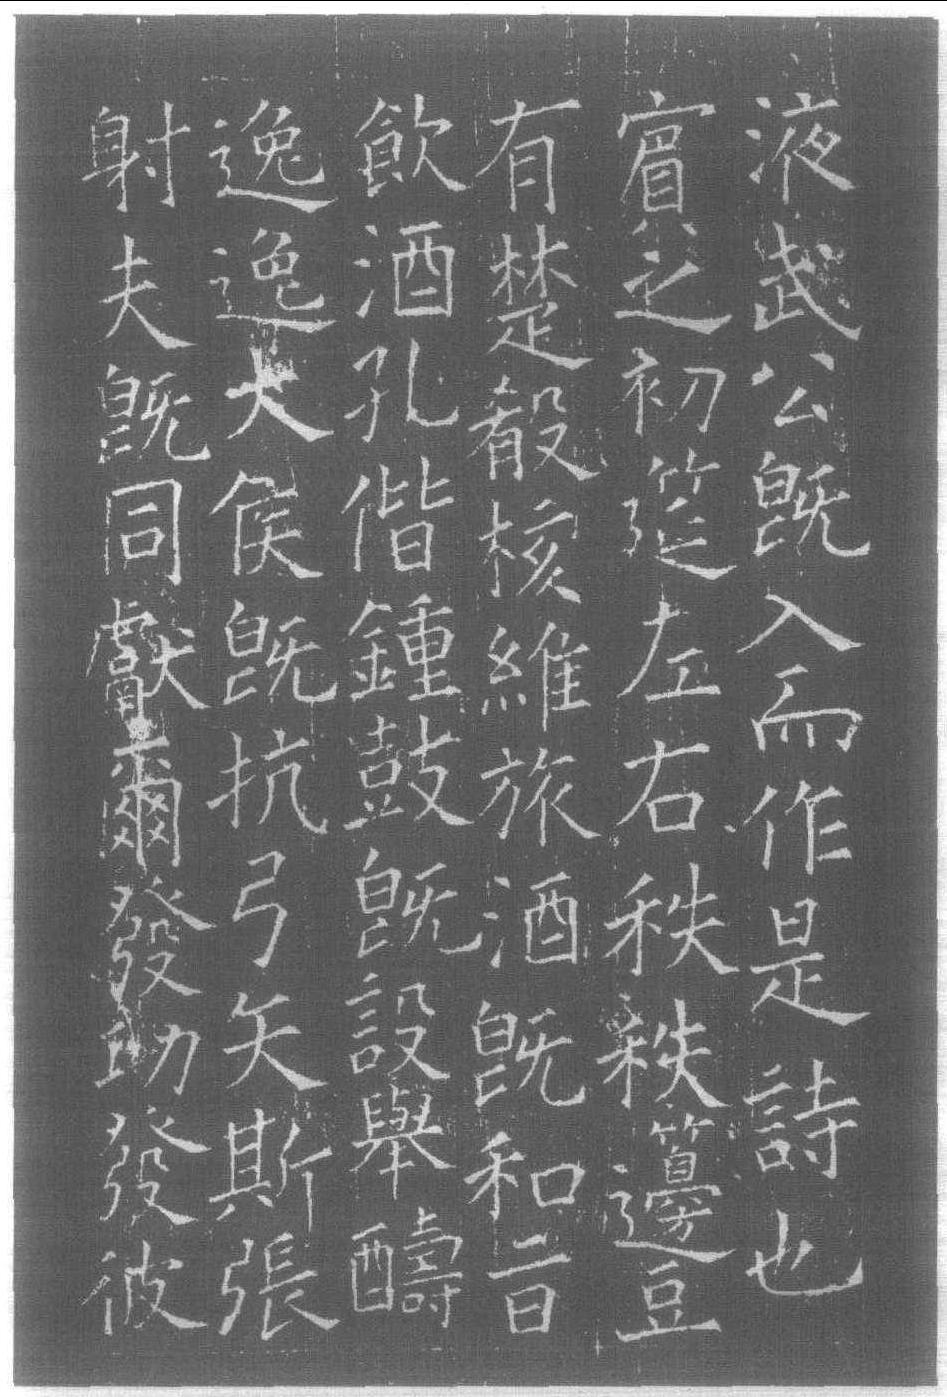 液武公旣入而作是詩也
賓之初筵左右秩秩籩豆
有楚殽核維旅酒旣和旨
飲酒孔偕鍾鼓旣設舉醻
逸逸大侯旣抗弓矢斯張
射夫旣同獻爾發功發彼